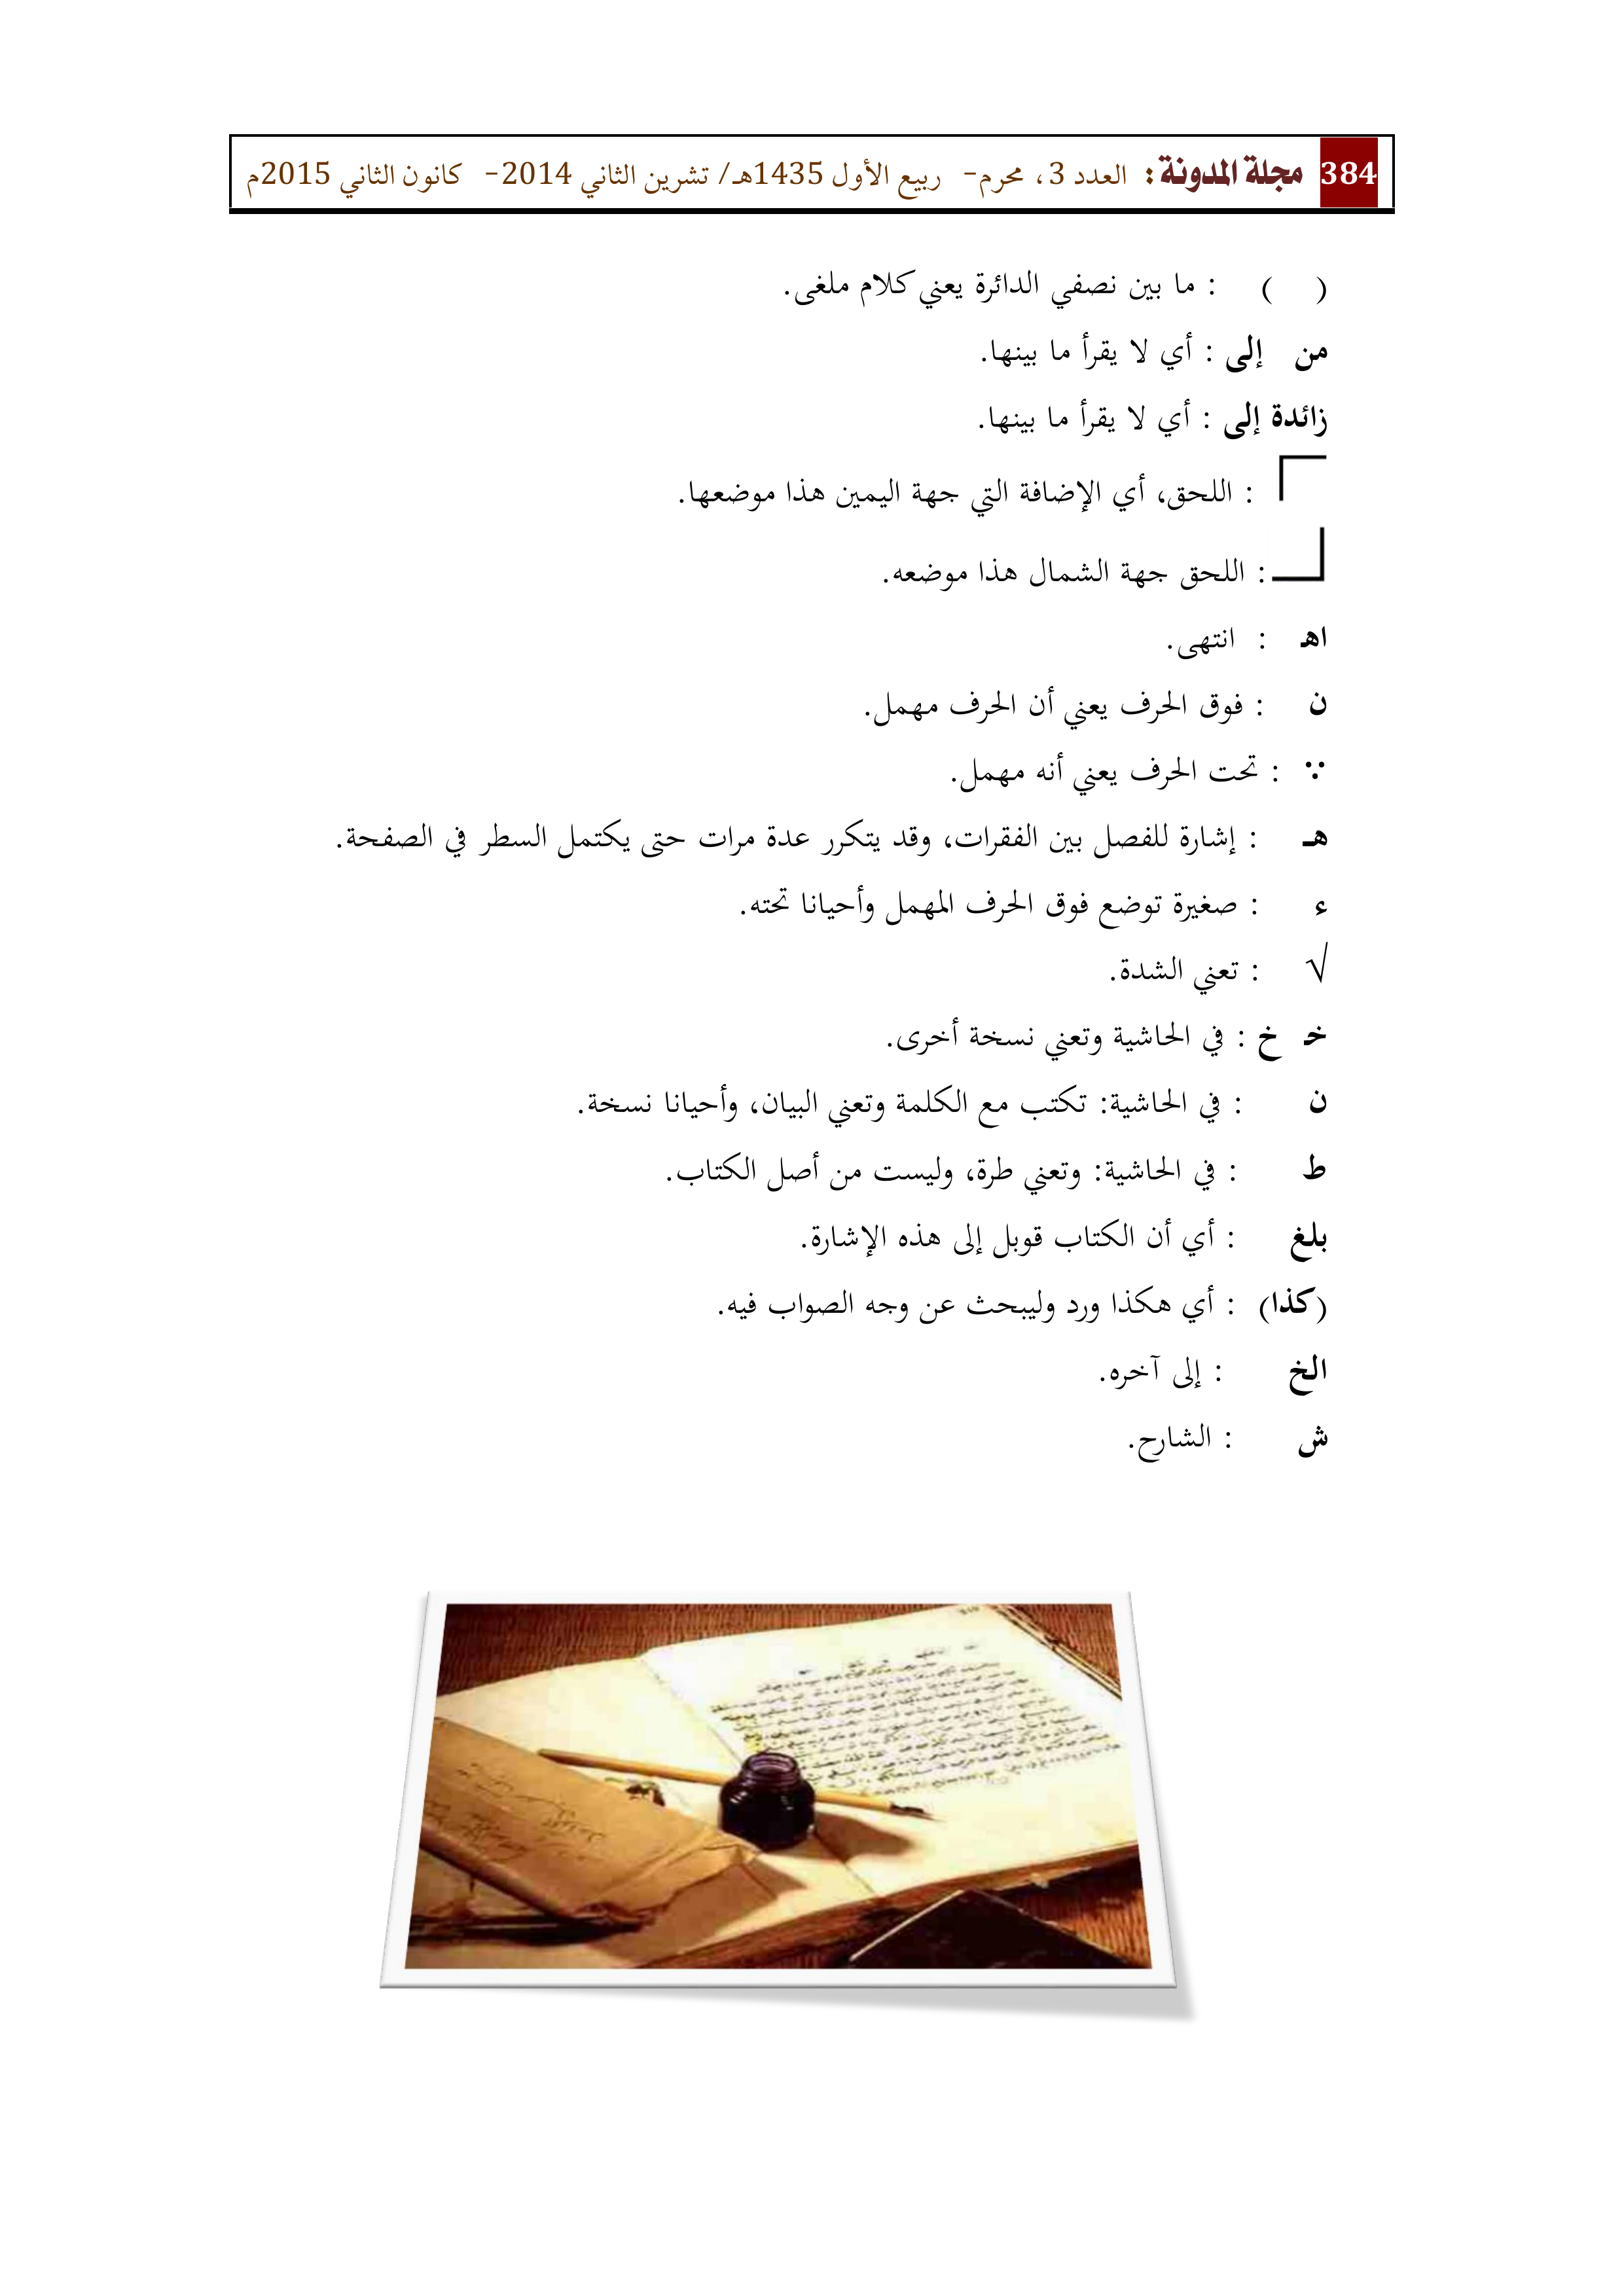 384 مجلة المدونة: العدد 3، محرم- ربيع الأول 1435هـ/ تشرين الثاني 2014- كانون الثاني 2015م
( ) : ما بين نصفي الدائرة يعني كلام ملغى.
من إلى : أي لا يقرأ ما بينها.
زائدة إلى : أي لا يقرأ ما بينها.
: اللحق، أي الإضافة التي جهة اليمين هذا موضعها.
: اللحق جهة الشمال هذا موضعه.
اهـ : انتهى.
ن : فوق الحرف يعني أن الحرف مهمل.
∵ : تحت الحرف يعني أنه مهمل.
هـ : إشارة للفصل بين الفقرات، وقد يتكرر عدة مرات حتى يكتمل السطر في الصفحة.
ء : صغيرة توضع فوق الحرف المهمل وأحيانا تحته.
√ : تعني الشدة.
خـ خ : في الحاشية وتعني نسخة أخرى.
ن : في الحاشية: تكتب مع الكلمة وتعني البيان، وأحيانا نسخة.
ط : في الحاشية: وتعني طرة، وليست من أصل الكتاب.
بلغ : أي أن الكتاب قوبل إلى هذه الإشارة.
(كذا) : أي هكذا ورد وليبحث عن وجه الصواب فيه.
الخ : إلى آخره.
ش : الشارح.